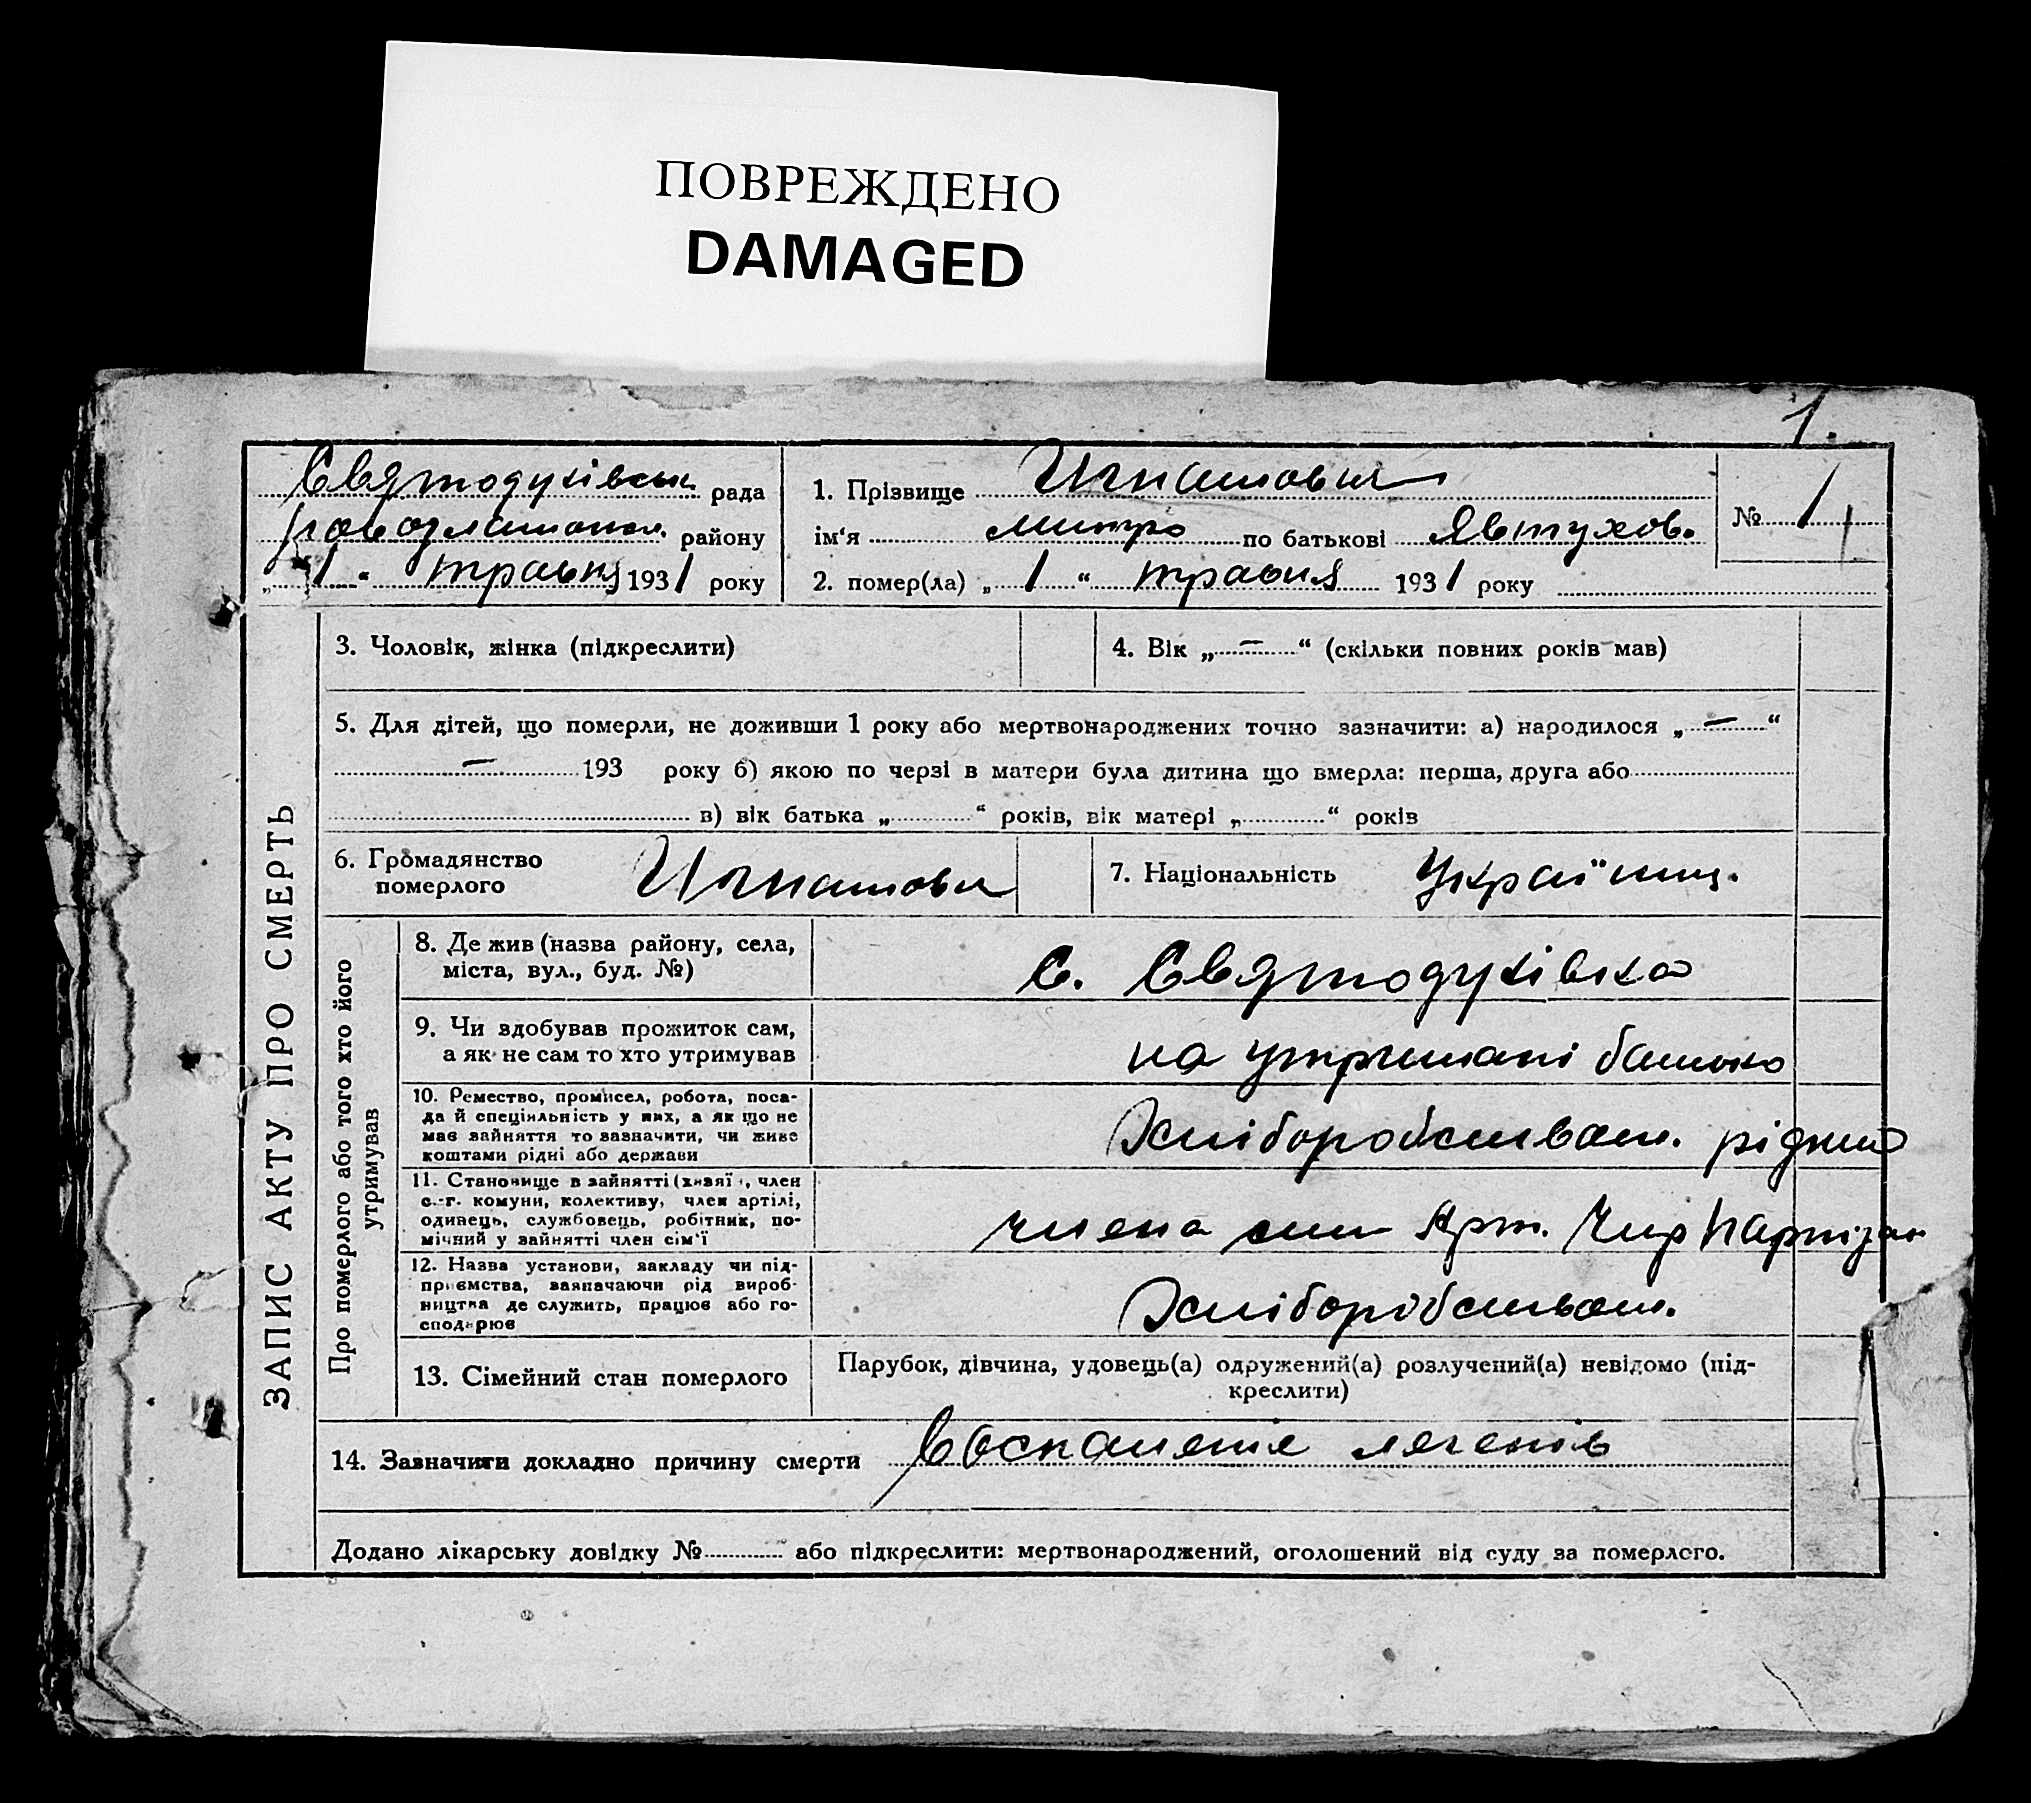 ПОВРЕЖДЕНО
DAMAGED
1.
Святодухівськ. рада
району
„1“ травня 1931 року
1. Прізвище Игнатович
№ 1
ім‘я Митро по батькові Явтухов.
2. помер(ла) „1“ травня 1931 року
3. Чоловік, жінка (підкреслити)
4. Вік „—“ (скільки повних років мав)
5. Для дітей, що померли, не доживши 1 року або мертвонароджених точно зазначити: а) народилося „—“
— 193 року б) якою по черзі в матери була дитина що вмерла: перша, друга або
в) вік батька „ “ років, вік матері „ “ років
6. Громадянство
померлого
Игнатович
7. Національність Украïнец.
ЗАПИС АКТУ ПРО СМЕРТЬ
Про померлого або того хто його
утримував
8. Де жив (назва району, села,
міста, вул., буд. №)
С. Святодухівка
9. Чи здобував прожиток сам,
а як не сам то хто утримував
на утримані батько
10. Ремество, промисел, робота, поса-
да й спеціяльність у них, а як що не
має зайняття то зазначити, чи живе
коштами рідні або держави
Хліборобством. рідний
11. Становище в зайнятті (хазяї , член
с.-г. комуни, колективу, член артілі,
одинець, службовець, робітник, по-
мічний у зайнятті член сім‘ї
члена син Арт. Чир Партізан
12. Назва установи, закладу чи під-
приємства, зазначаючи рід вироб-
ництва де служить, працює або го-
сподарює
Хліборобством.
13. Сімейний стан померлого
Парубок, дівчина, удовець(а) одружений(а) розлучений(а) невідомо (під-
креслити)
14. Зазначити докладно причину смерти Воспаленіе легенів
Додано лікарську довідку № або підкреслити: мертвонароджений, оголошений від суду за померлого.